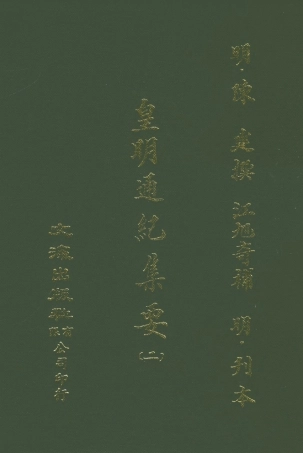 明·陳 建撰 江旭奇補 明·刊本
皇明通紀集要(二)
文海出版社有限公司印行